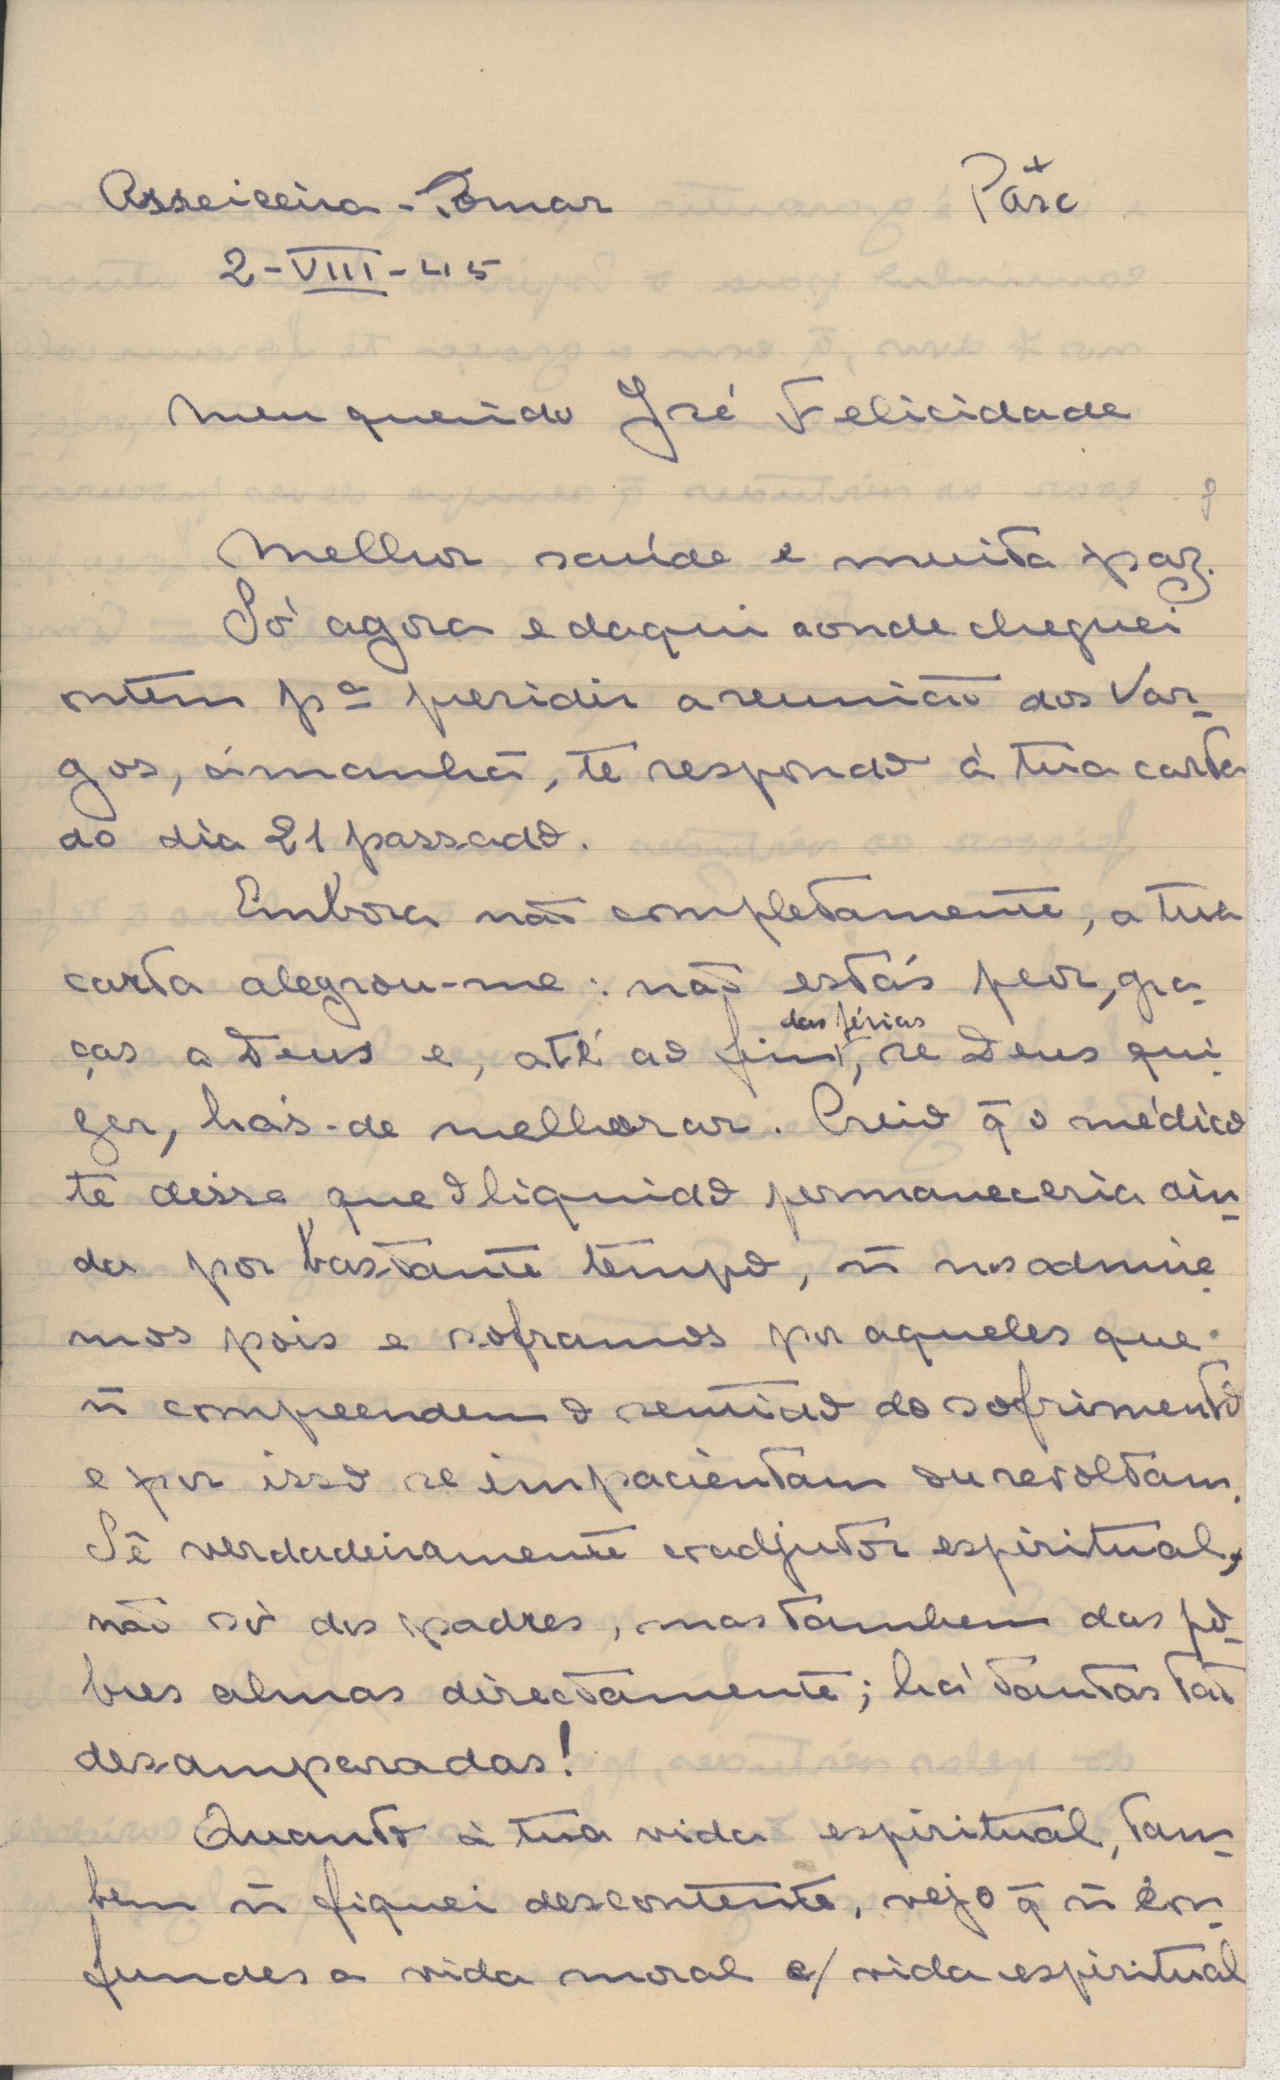 Asseiceira - Tomar
Pãxc
2-VIII-45
Meu querido José Felicidade
Melhor saúde e muita paz.
Só agora e daqui aonde cheguei
ontem pª presidir a reunião dos Var-
gos, ámanhã, te respondo à tua carta
do dia 21 passado.
Embora não completamente, a tua
carta alegrou-me: não estás peor, gra-
ças a Deus e, até ao fim das férias, se Deus qui-
zer, hás-de melhorar. Creio q̄ o médico
te disse que o liquido permaneceria ain-
da por bastante tempo, ñ nos admire-
mos pois e soframos por aqueles que
ñ compreendem o sentido do sofrimento
e por isso se impacientam ou revoltam.
Sê verdadeiramente coadjutor espiritual,
não só dos padres, mas tambem das po-
bres almas directamente; há tantas tão
desamparadas!
Quanto à tua vida espiritual, tam-
bem ñ fiquei descontente, vejo q̄ ñ con-
fundes a vida moral c/ vida espiritual